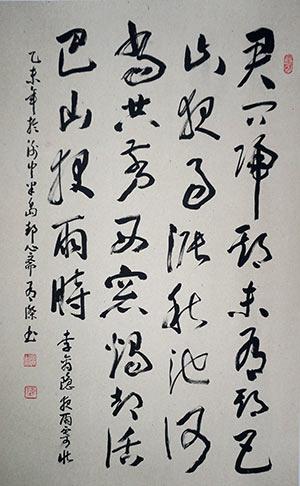 君问歸期未有期巴
山夜雨漲秋池何
當共剪西窗燭却話
巴山夜雨時
李商隱夜雨寄北
乙未年於渝中半島心齋書